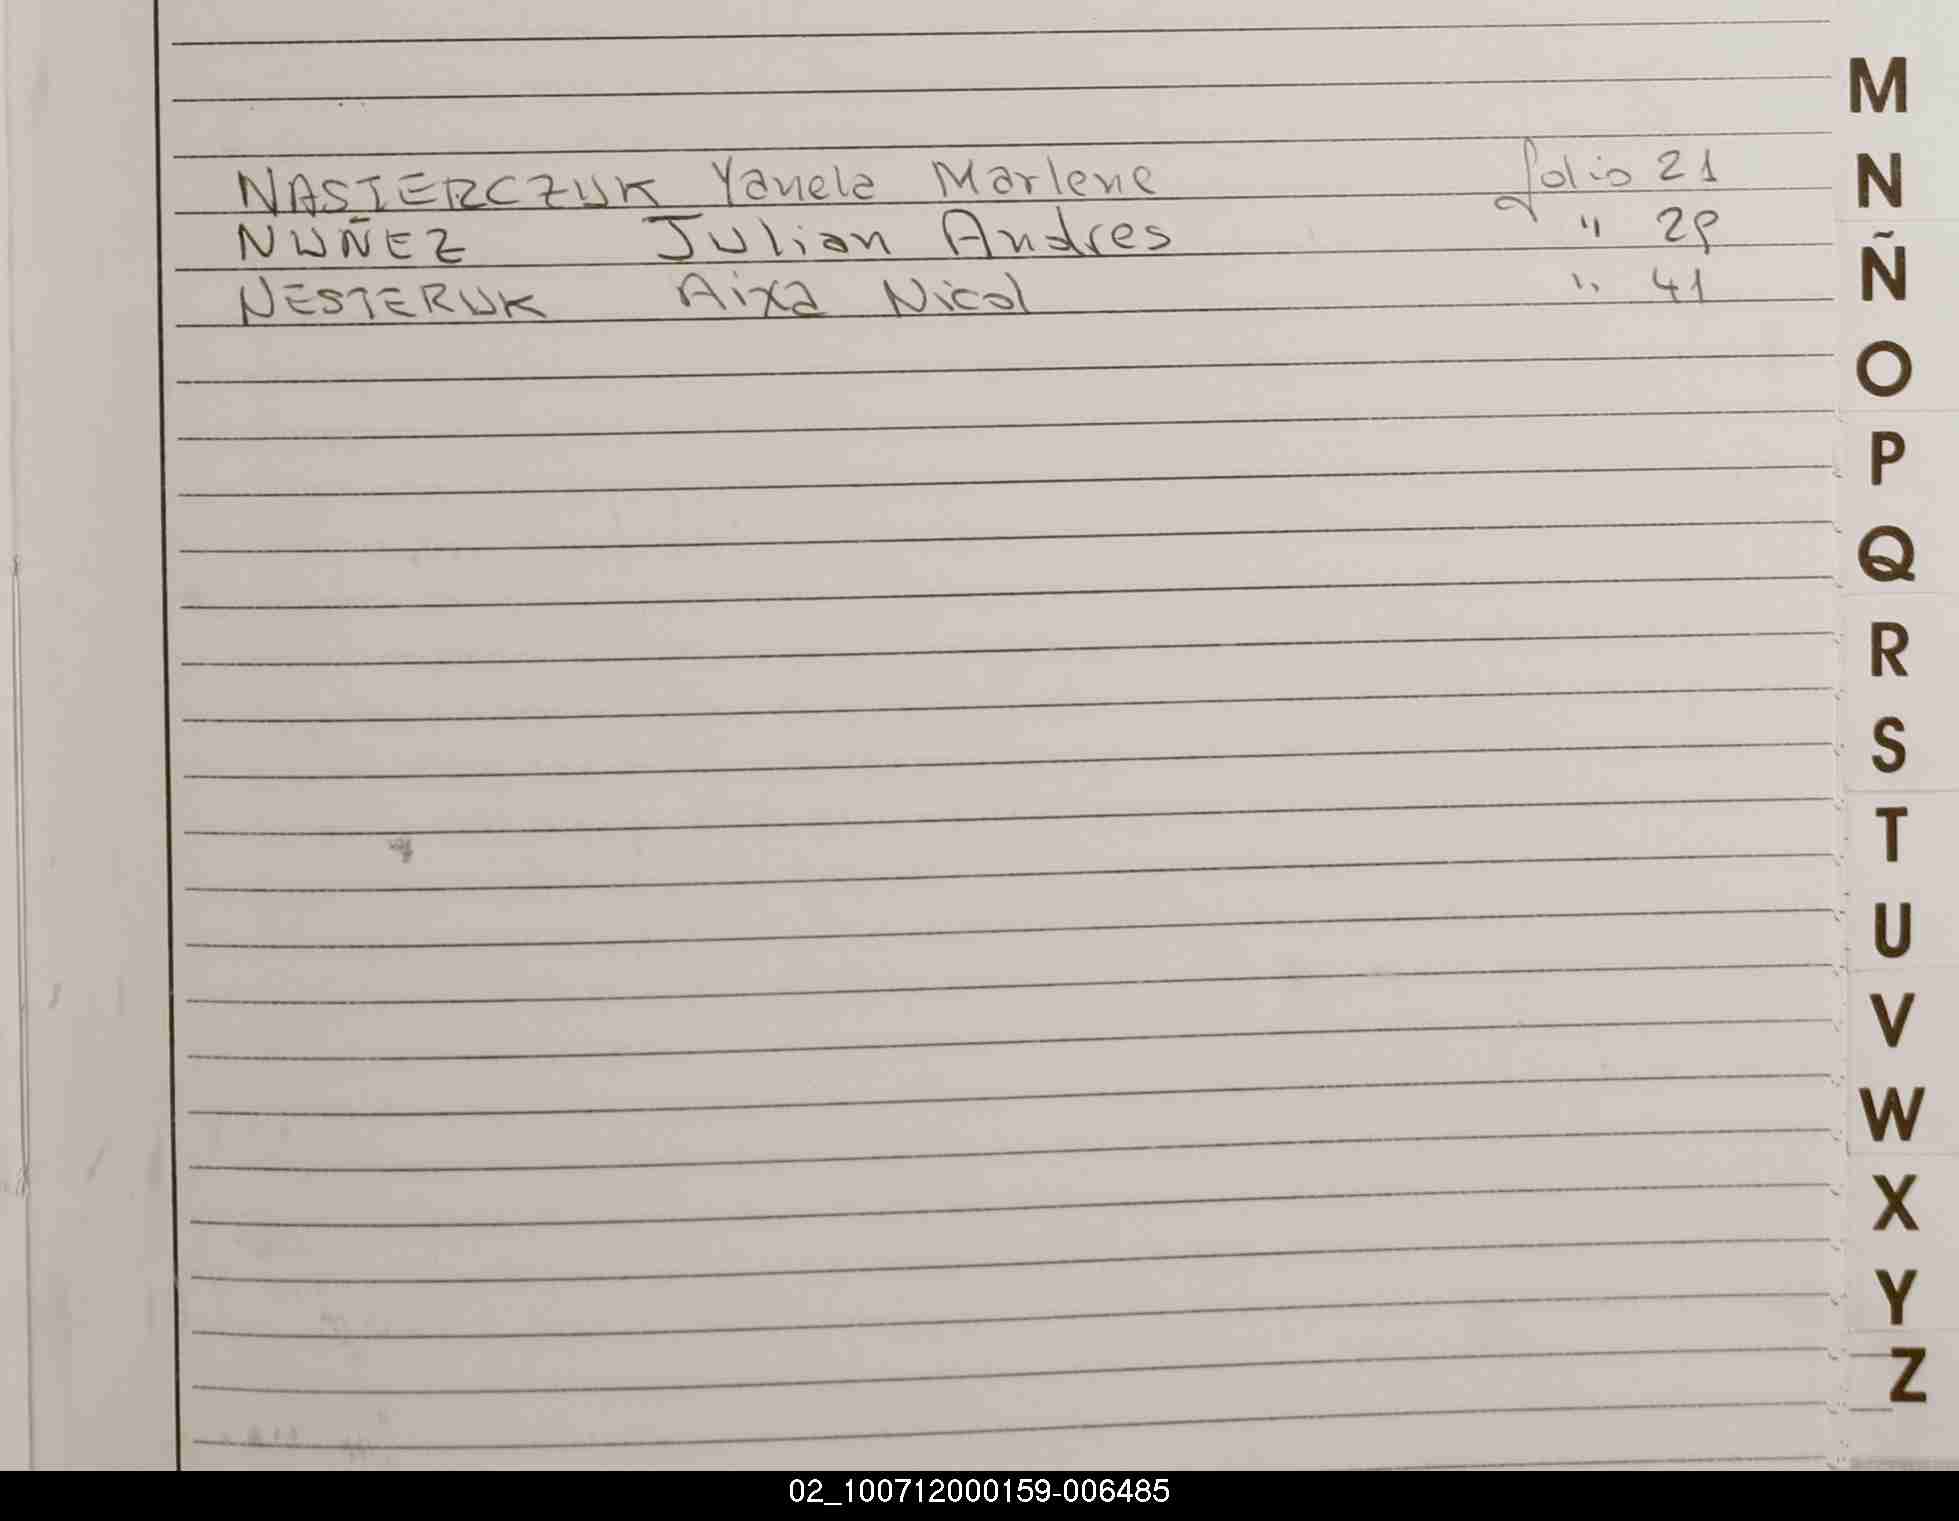 M
NASIERCZUK Yanela Marlene folio 21
N
NUÑEZ Julian Andres " 29
Ñ
NESTERUK Aixa Nicol " 41
O
P
Q
R
S
T
U
V
W
X
Y
Z
02_100712000159-006485